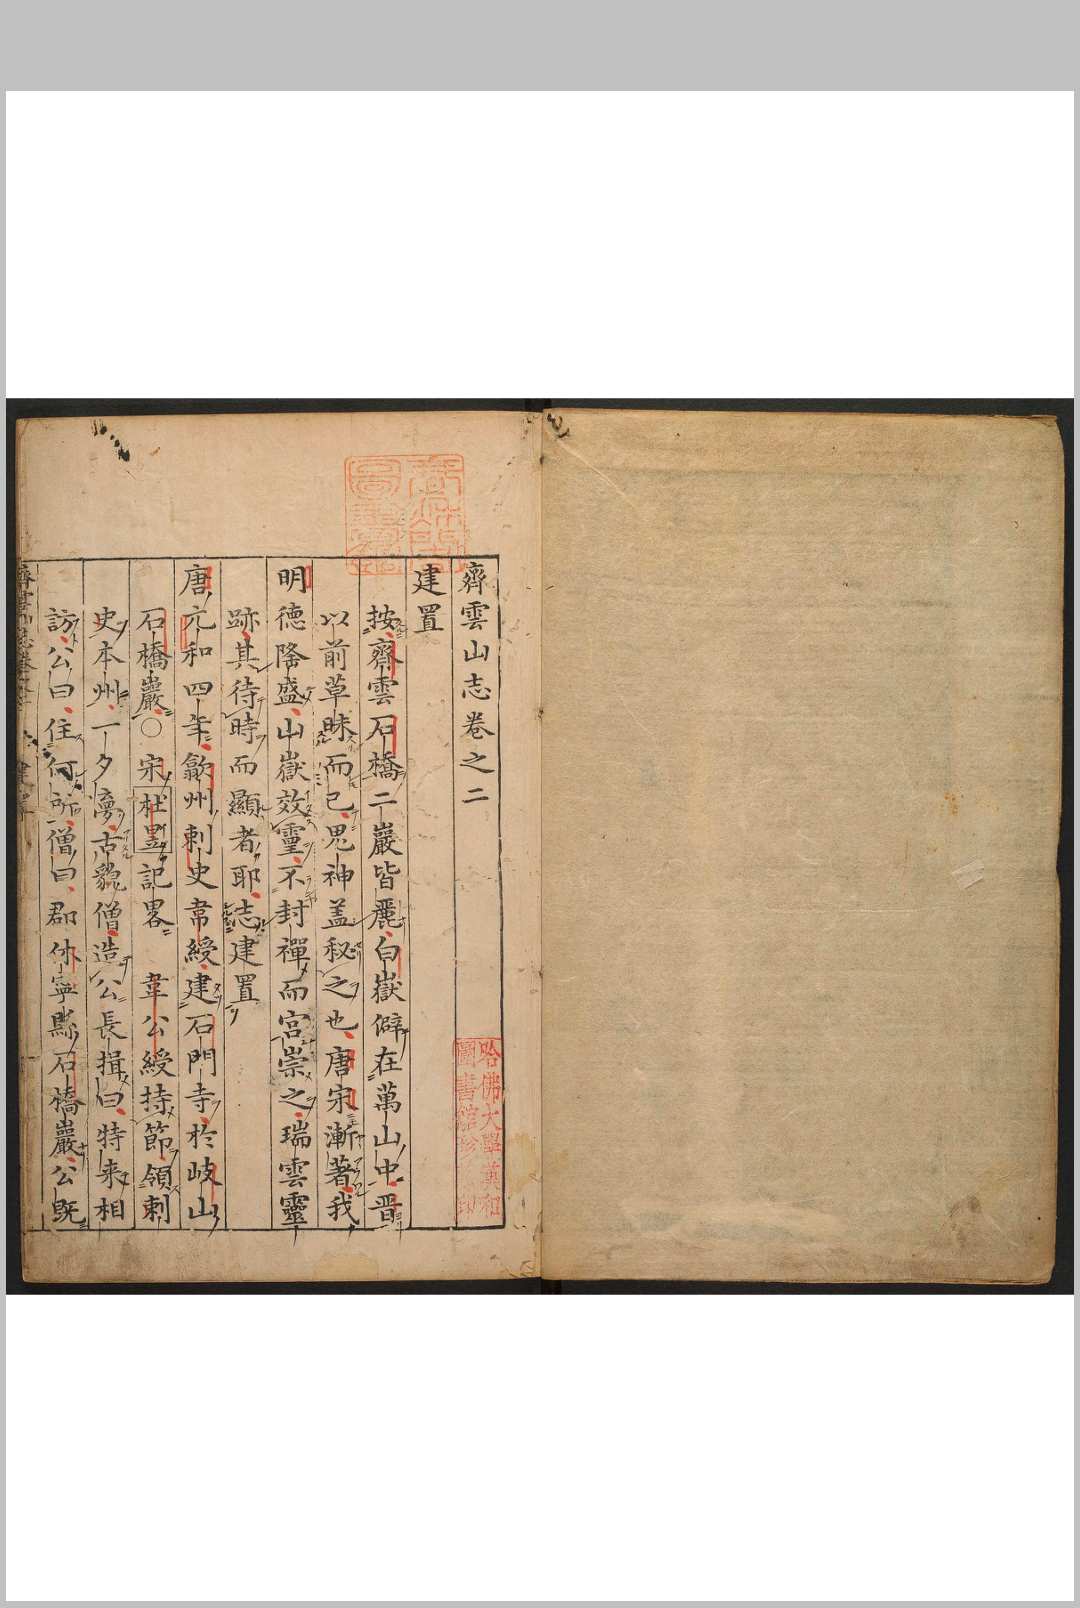 齊雲山志卷之二
建置
按齊雲石橋二巖皆麗白嶽僻在萬山中晋
以前草昧而已鬼神盖秘之也唐宋漸著我
明德隆盛山嶽效靈不封禪而宫崇之瑞雲靈
跡其待時而顯者耶志建置
唐元和四年歙州刺史韋綬建石門寺於岐山
石橋巖○宋杜
記畧 韋公綬持節領剌
史本州一夕夢古貌僧造公長揖曰特来相
訪公曰住何所僧曰郡休寧縣石橋巖公旣
哈佛大學漢和
圖書館珍
印